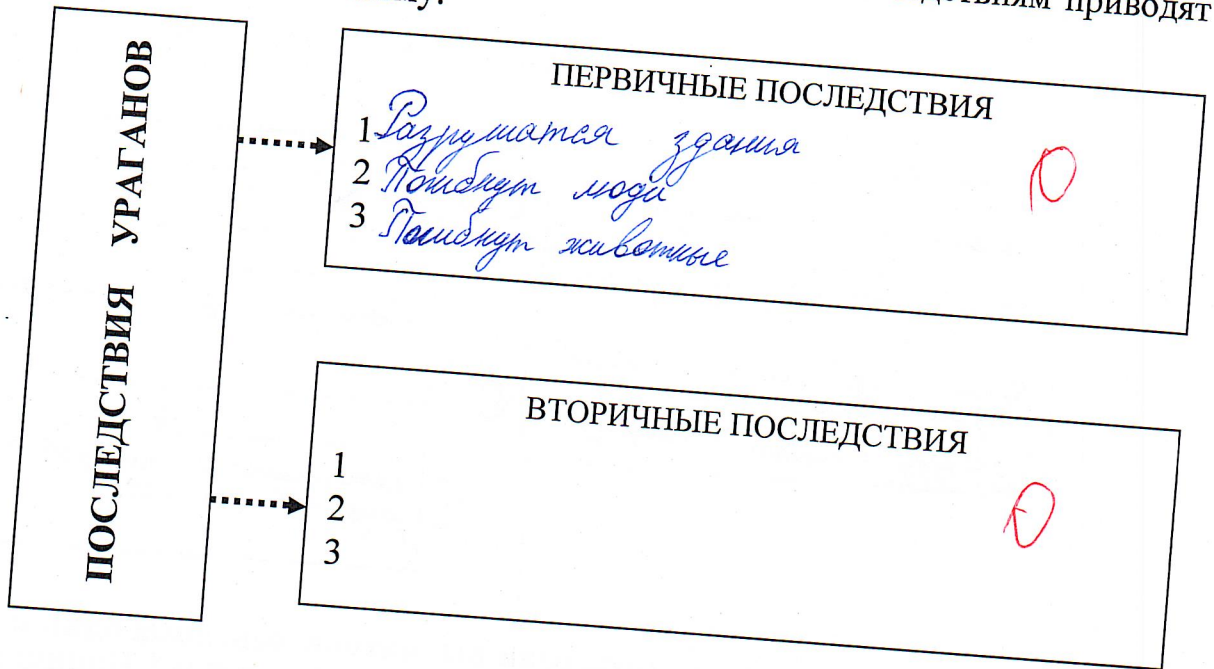 приводят
ПОСЛЕДСТВИЯ УРАГАНОВ
ПЕРВИЧНЫЕ ПОСЛЕДСТВИЯ
1 Разрушатся здания
2 Погибнут люди
3 Погибнут животные
0
ВТОРИЧНЫЕ ПОСЛЕДСТВИЯ
1
2
3
0